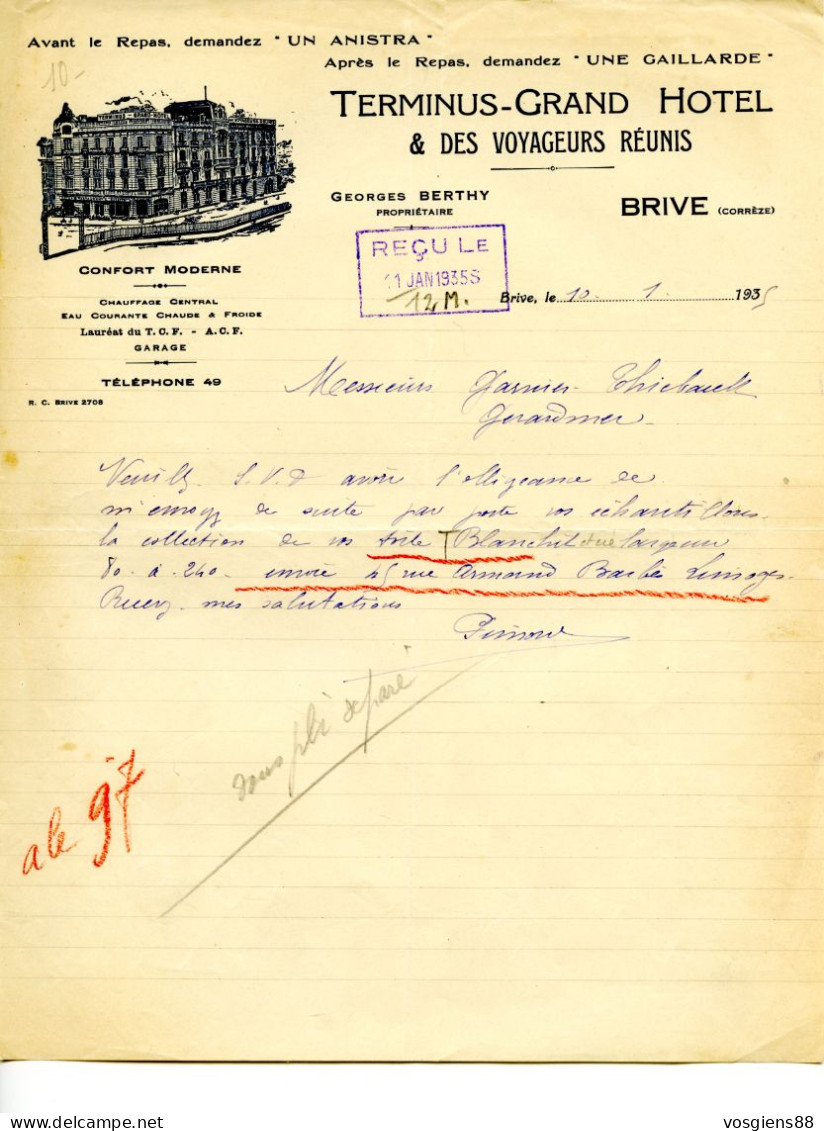 Avant le Repas, demandez "UN ANISTRA"
Après le Repas, demandez "UNE GAILLARDE"
10-
TERMINUS-GRAND HOTEL
& DES VOYAGEURS RÉUNIS
GEORGES BERTHY
PROPRIÉTAIRE
BRIVE (CORRÈZE)
CONFORT MODERNE
CHAUFFAGE CENTRAL
EAU COURANTE CHAUDE & FROIDE
Lauréat du T.C.F. - A.C.F.
GARAGE
TÉLÉPHONE 49
R. C. BRIVE 2708
REÇU LE
11 JAN 1935 S
12 M.
Brive, le 10. 1. 1935
Messieurs Garnier Thiebault
Gerardmer
Veuillz S.V.P avoir l'obligeance de
m'envoyz de suite par poste vos échantillons
la collection de vos toile Blanchit largeur
80 à 240. envoie 45 rue Armand Barbès Limoges
Recevz mes salutations
sous pli séparé
a le 97
vosgiens88